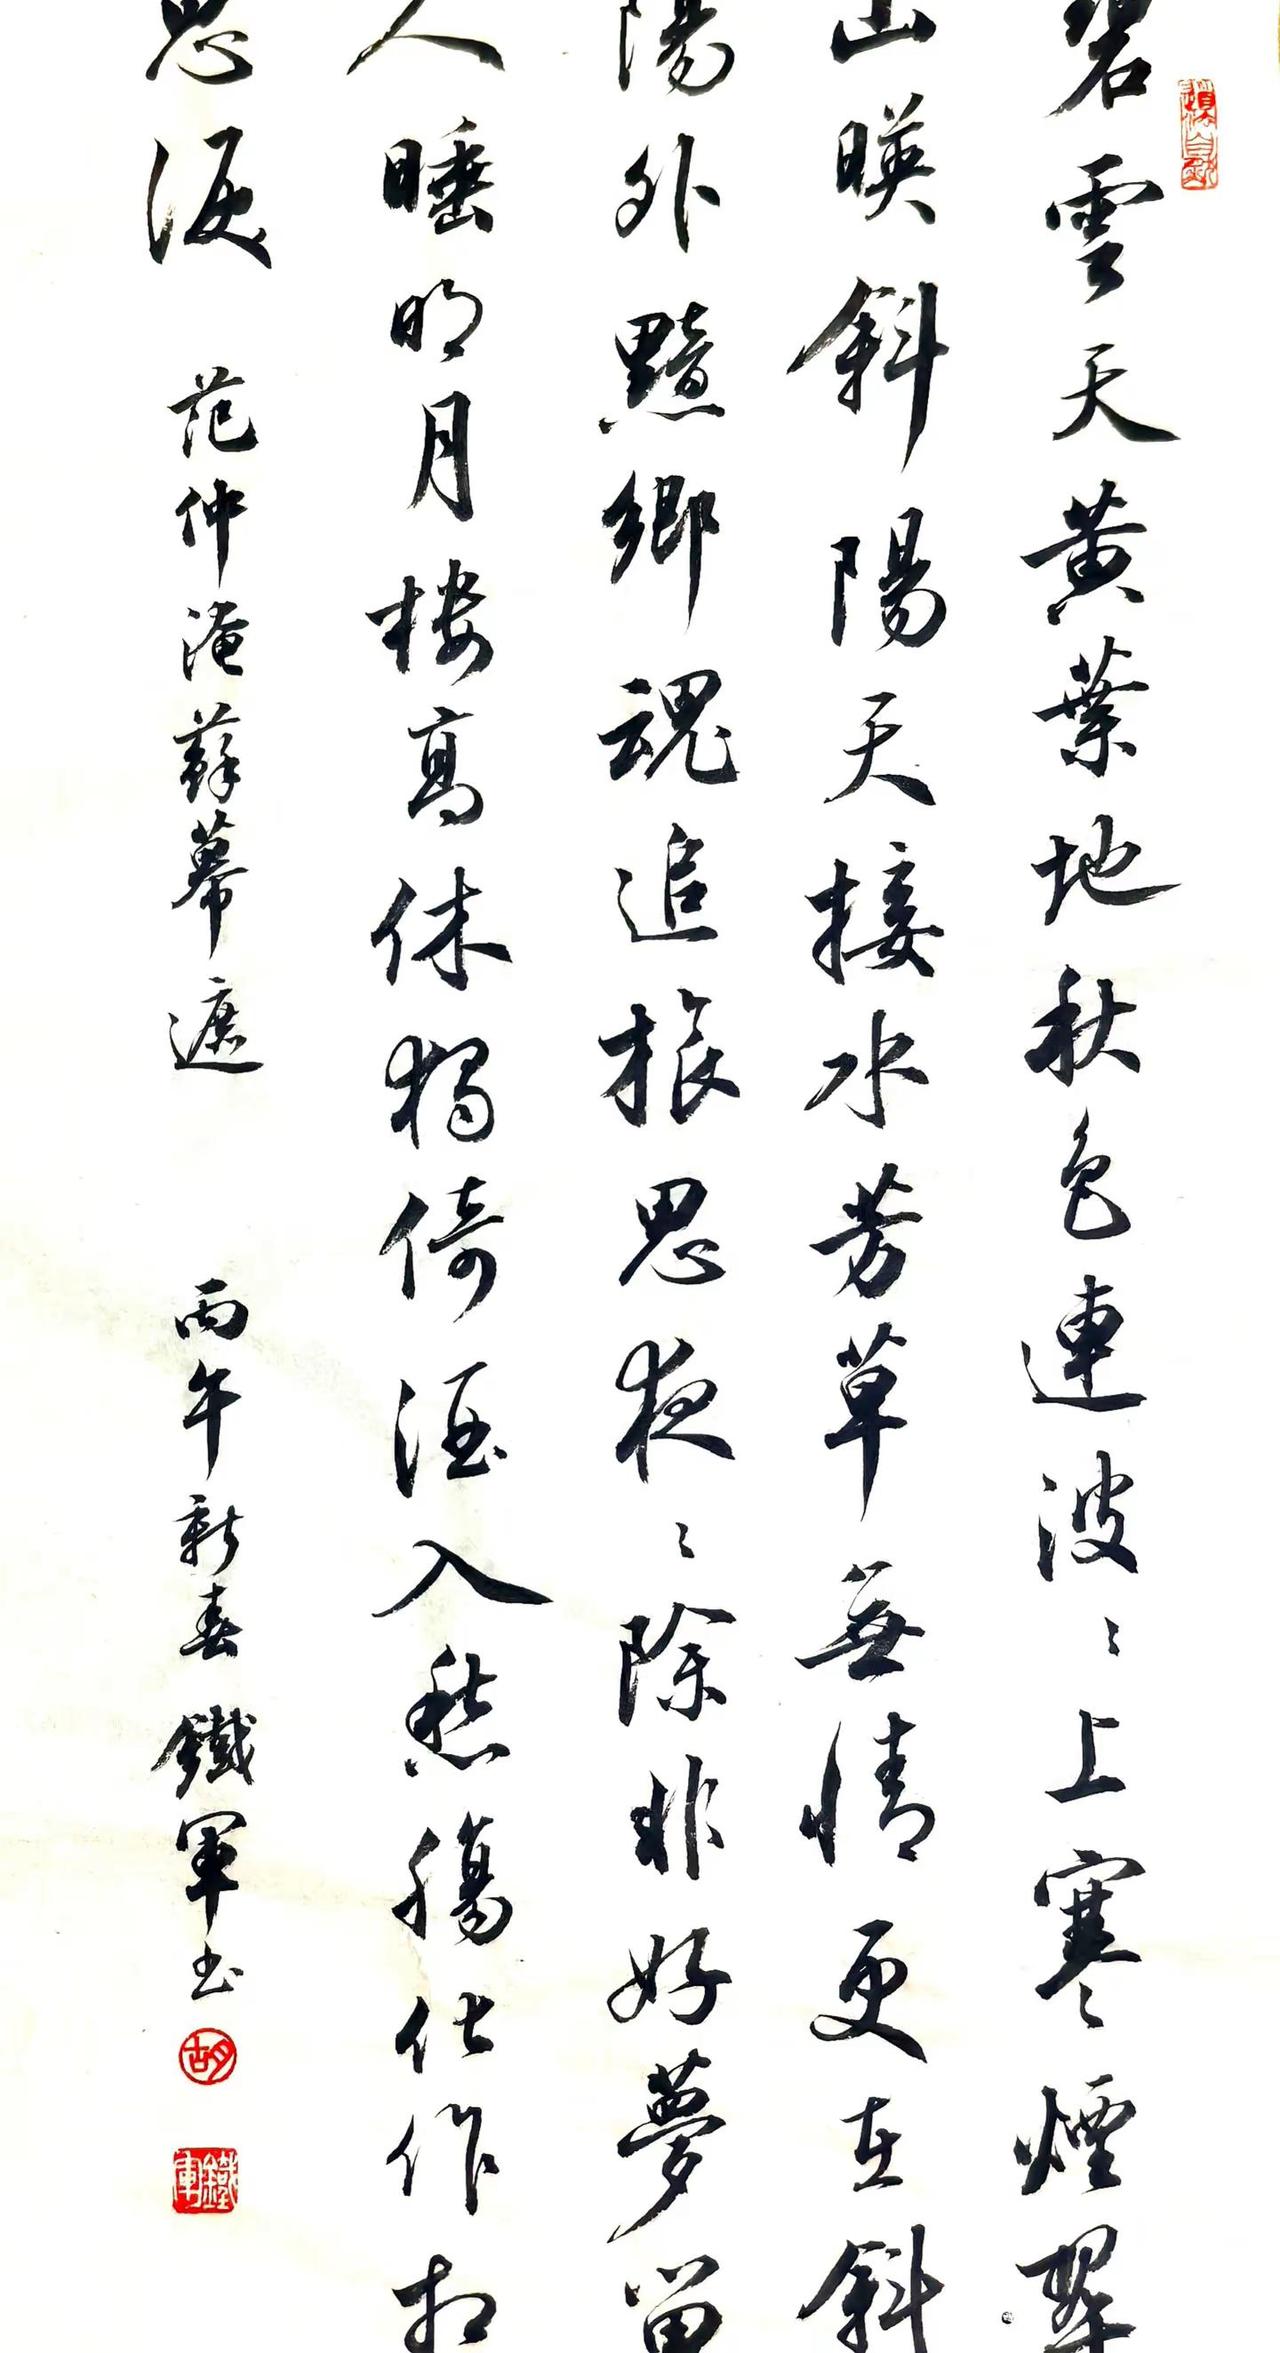 道法自然
碧雲天黃葉地秋色連波〻上寒煙翠
山暎斜陽天接水芳草無情更在斜
陽外黯鄉魂追旅思夜〻除非好夢留
人睡明月樓高休獨倚酒入愁腸化作相
思淚 范仲淹蘇幕遮 丙午新春 鐵軍書
胡
鐵軍